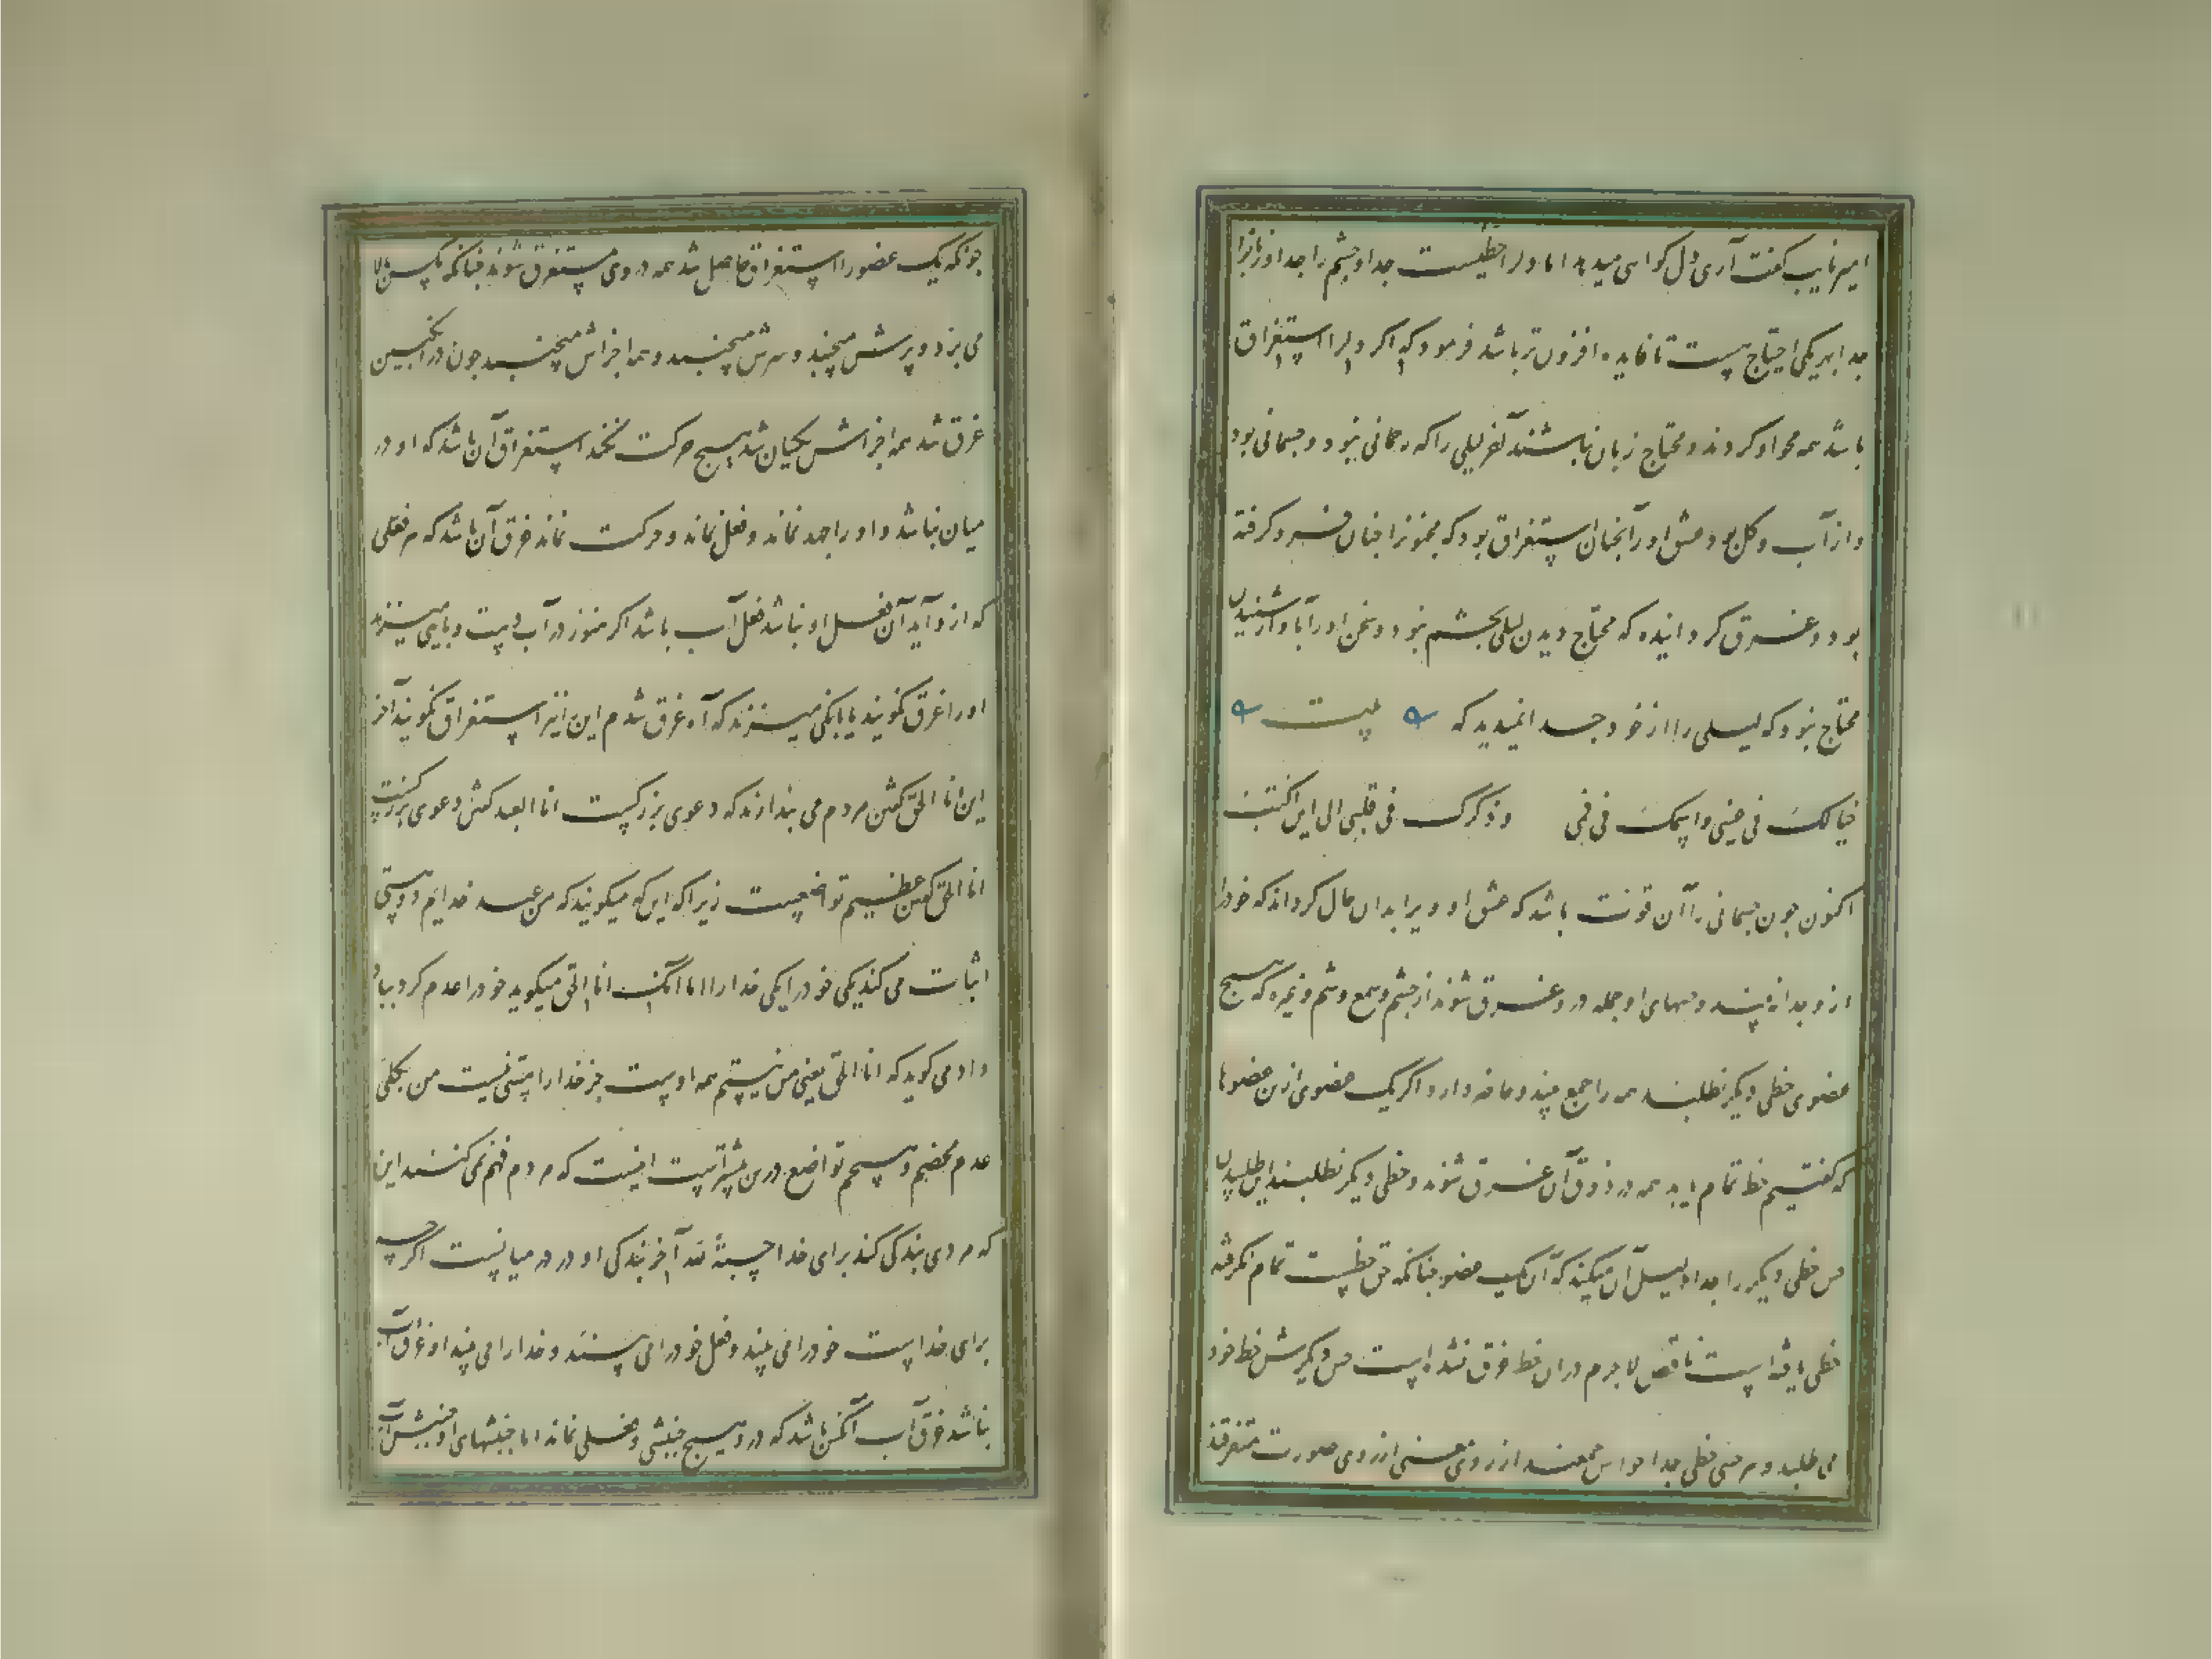 امیر نایب گفت آری دل گواهی میدهد اما دلرا حظیست جدا و چشم را جدا و زبانرا
جدا بهر یکی احتیاج هست تا فایده افزون تر باشد فرمود که اگر دلرا استغراق
باشد همه محو او گردند و محتاج زبان نباشند آخر لیلی را که رحمانی نبود و جسمانی بود
و از آب و گل بود عشق او را آنچنان استغراق بود که مجنونرا چنان فرو گرفته
بود و غرق گردانیده که محتاج دیدن لیلی بچشم نبود و سخن او را بآواز شنیدن
محتاج نبود که لیلی را از خود جدا نمیدید که بیت
خیالک فی عینی و اسمک فی فمی و ذکرک فی قلبی الی این اکتب
اکنون چون جسمانی را آن قوت باشد که عشق او ویرا بدان حال گرداند که خود را
ازو جدا نبیند و حسهای او جمله درو غرق شوند از چشم و سمع و شم و غیره که هیچ
عضوی حظی دیگر نطلبد همه را جمع بیند و حاضر دارد اگر یک عضوی ازین عضوها
که گفتیم حظ تمام یابد همه در ذوق آن غرق شوند و حظی دیگر نطلبند این طلبیدن
حس حظی دیگر را جدا دلیل آن میکند که آن یک عضو چنانکه حق حظیست تمام نگرفته
حظی یافته است ناقص لاجرم در آن حظ غرق نشده است حس دیگرش حظ خود
می طلبد و هر حسی حظی جدا حواس جمعند از روی معنی از روی صورت متفرقند
چونکه یک عضو را استغراق حاصل شد همه در وی مستغرق شوند چنانکه مگس بالا
می پرد و پرش میجنبد و سرش میجنبد و همه اجزاش میجنبد چون در انگبین
غرق شد همه اجزاش یکسان شد هیچ حرکت نکند استغراق آن باشد که او در
میان نباشد و او را جهد نماند و فعل نماند و حرکت نماند غرق آن باشد که هر فعلی
که ازو آید آن فعل او نباشد فعل آب باشد اگر هنوز در آب دست و پایی میزند
او را غرق نگویند یا بانگی میزند که آه غرق شدم این را نیز استغراق نگویند آخر
این انا الحق گفتن مردم می پندارند که دعوی بزرگیست انا العبد گفتن دعوی بزرگیست
انا الحق گفتن عظیم تواضعیست زیرا که این که میگویند که من عبد خدایم دو هستی
اثبات می کند یکی خود را یکی خدا را اما آنکه انا الحق میگوید خود را عدم کرد بباد
داد می گوید که انا الحق یعنی من نیستم همه اوست جز خدا را هستی نیست من بکلی
عدم محضم و هیچم تواضع درین بیشترست اینست که مردم فهم نمی کنند این
که مردی بندگی کند برای خدا حسبة لله آخر بندگی او در میانست اگرچه
برای خداست خود را می بیند و فعل خود را می بیند و خدا را می بیند او غرق آب
نباشد غرق آب آنکس باشد که درو هیچ جنبشی و فعلی نماند اما جنبشهای او جنبش آب